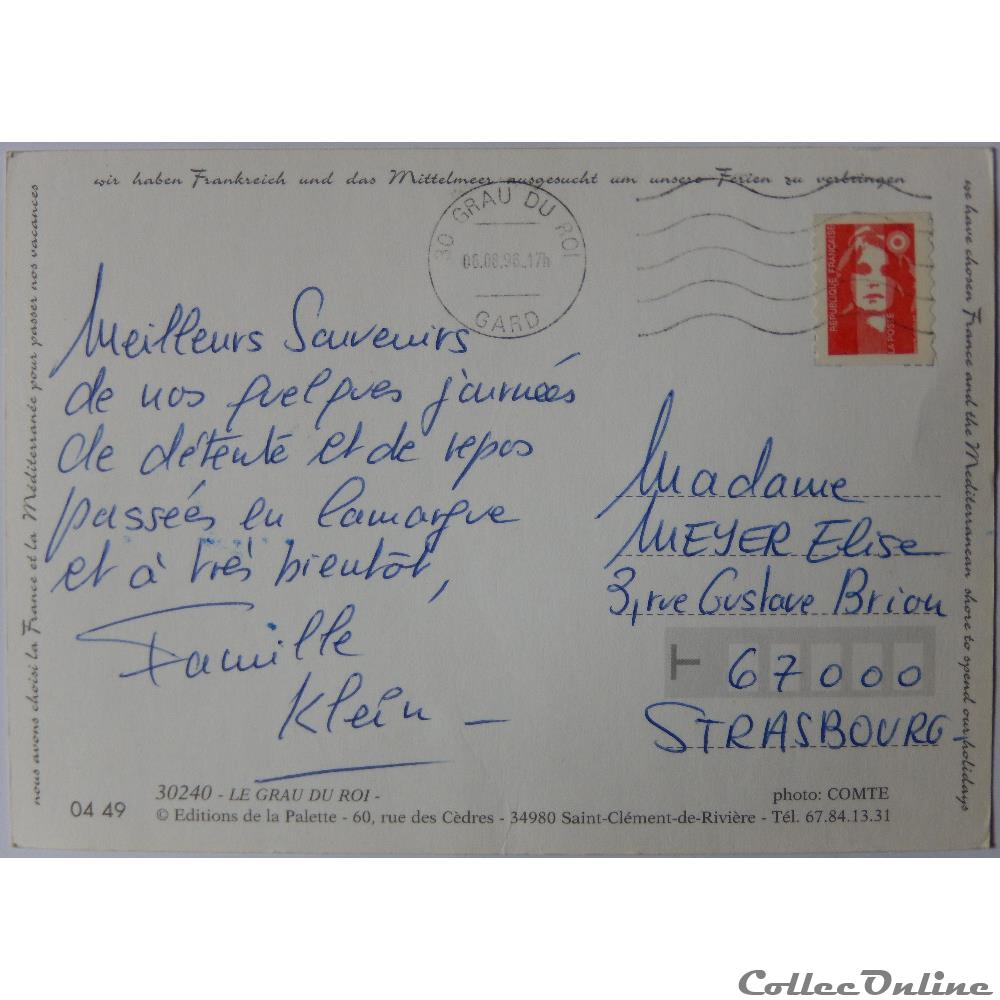 wir haben Frankreich und das Mittelmeer ausgesucht um unsere Ferien zu verbringen
nous avons choisi la France et la Méditerranée pour passer nos vacances
we have chosen France and the Mediterranean shore to spend our holidays
30 GRAU DU ROI
06.08.96.17h
GARD
REPUBLIQUE FRANÇAISE
LA POSTE
Meilleurs Souvenirs
de nos quelques journées
de détente et de repos
passées en Camargue
et à très bientôt,
Famille
Klein
Madame
MEYER Elise
3, rue Gustave Brion
T 67000
STRASBOURG
30240 - LE GRAU DU ROI -
photo: COMTE
04 49
© Editions de la Palette - 60, rue des Cèdres - 34980 Saint-Clément-de-Rivière - Tél. 67.84.13.31
CollecOnline